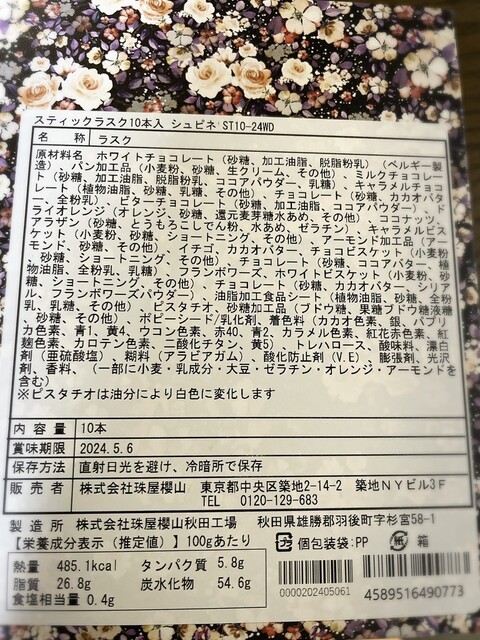 スティックラスク10本入 シュピネ ST10-24WD
名　称　ラスク
原材料名　ホワイトチョコレート（砂糖、加工油脂、脱脂粉乳）（ベルギー製
造）、パン加工品（小麦粉、砂糖、生クリーム、その他）、ミルクチョコレー
ト（砂糖、加工油脂、脱脂粉乳、ココアパウダー、乳糖）、キャラメルチョコ
レート（植物油脂、砂糖、乳糖、その他）、チョコレート（砂糖、カカオバタ
ー、全粉乳）、ビターチョコレート（砂糖、加工油脂、ココアパウダー）、ド
ライオレンジ（オレンジ、砂糖、還元麦芽糖水あめ、その他）、ココナッツ、
アラザン（砂糖、とうもろこしでん粉、水あめ、ゼラチン）、キャラメルビス
ケット（小麦粉、砂糖、ショートニング、その他）、アーモンド加工品（アー
モンド、砂糖、その他）、イチゴ、カカオバター、チョコビスケット（小麦粉
、砂糖、ショートニング、その他）、チョコレート（砂糖、ココアバター、植
物油脂、全粉乳、乳糖）、フランボワーズ、ホワイトビスケット（小麦粉、砂
糖、ショートニング、その他）、チョコレート（砂糖、カカオバター、シリア
ル、フランボワーズパウダー）、油脂加工食品シート（植物油脂、砂糖、全粉
乳、乳糖、その他）、ピスタチオ、砂糖加工品（ブドウ糖、果糖ブドウ糖液糖
、砂糖、その他）、ポピーシード/乳化剤、着色料（カカオ色素、銀、パプリ
カ色素、青1、黄4、ウコン色素、赤40、青2、カラメル色素、紅花赤色素、紅
麹色素、カロテン色素、二酸化チタン、黄5）、トレハロース、酸味料、漂白
剤（亜硫酸塩）、糊料（アラビアガム）、酸化防止剤（V.E）、膨張剤、光沢
剤、香料、（一部に小麦・乳成分・大豆・ゼラチン・オレンジ・アーモンドを
含む）
※ピスタチオは油分により白色に変化します
内 容 量　10本
賞味期限　2024.5.6
保存方法　直射日光を避け、冷暗所で保存
販 売 者　株式会社珠屋櫻山　東京都中央区築地2-14-2　築地NYビル3F
TEL　0120-129-683
製 造 所　株式会社珠屋櫻山秋田工場　秋田県雄勝郡羽後町字杉宮58-1
【栄養成分表示（推定値）】100gあたり　個包装袋:PP　箱
熱量　485.1kcal　タンパク質　5.8g
脂質　26.8g　炭水化物　54.6g
食塩相当量 0.4g
0000202405061　4589516490773